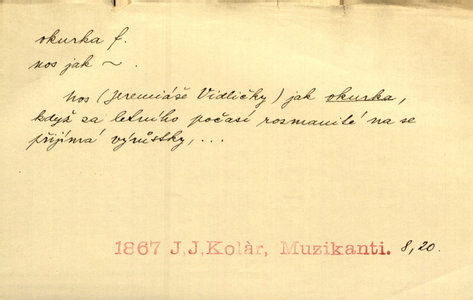 okurka f.
nos jak ~ .
Nos (Jeremiáše Vidličky) jak okurka,
když za letního počasí rozmanité na se
přijímá výrůstky, ...
1867 J.J.Kolàr, Muzikanti. 8,20.